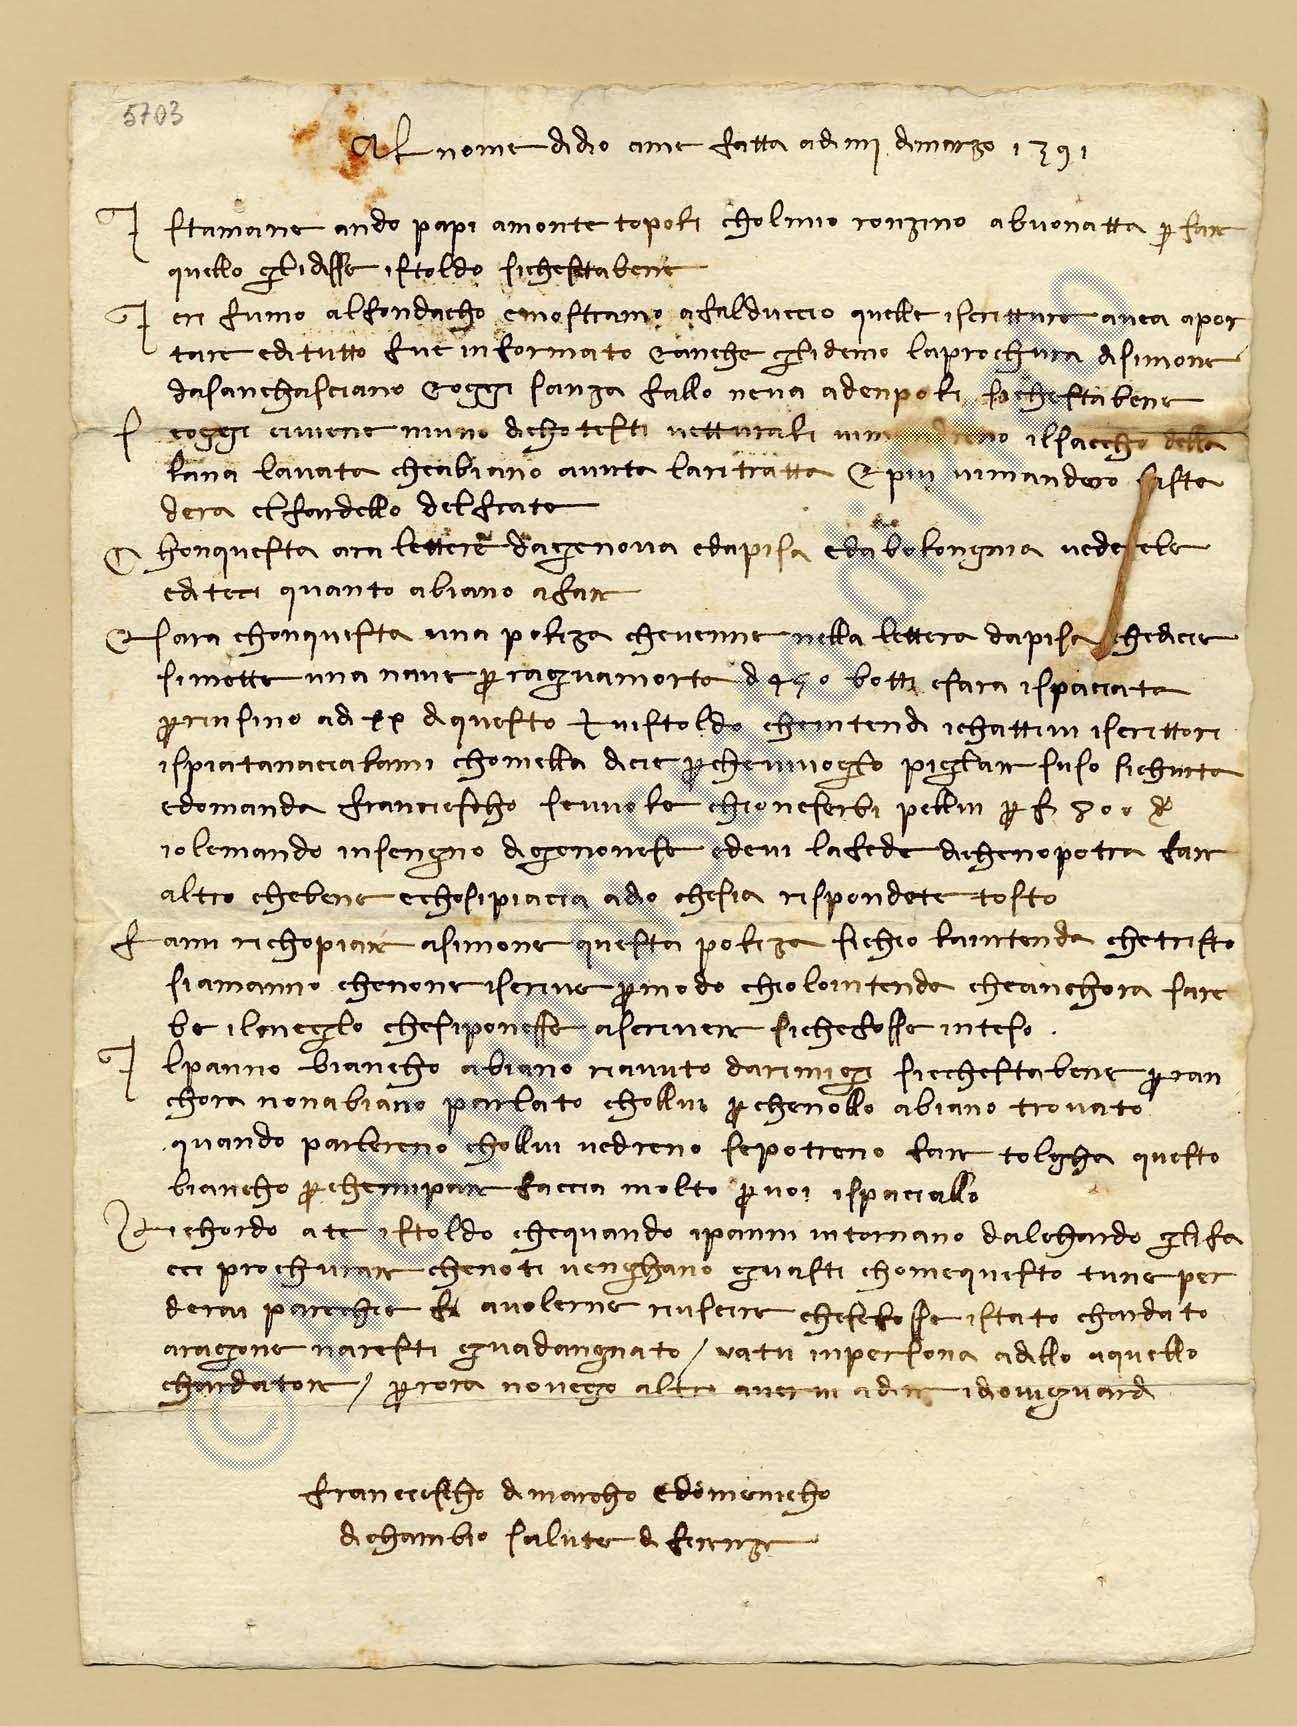 5703
Al nome di dio ame fatta adi iiii di marzo 1391
Istamane ando papi amonte topoli cholmio ronzino abuonatta p far
quello glidisse istoldo siche stabene
Ieri fumo alfondacho emostramo afalduccio quelle iscritture avea apor
tare editutto fue informato eanche glidemo laprochura disimone
dasanchasciano eoggi sanza fallo neva adenpoli sichestabene
eoggi civiene niuno dichotesti vetturali ilsaccho della
lana lavata cheabiano avuta laritratta e piu vimandero
dera elfardello delfrate
Chonquesta ara lettere dagenova edapisa eda bolongnia vedetele
editeci quanto abiano afar
E sara chonquesta una poliza chevenne nella lettera dapisa chedicie
simette una nave p raguamorta d 450 botti esara ispacciata
p rinsino adi xx diquesto tuistoldo cheintendi ichattivi iscrittori
ispiatanaciatami chomella dicie pchevivoglo piglar suso sichurta
edomanda franciescho sevuole chioneserbi pellui p f 300
iolemando insengno digenovese edevi lafede dichenopotra far
altro chebene echosipiaccia adio chesia rispondete tosto
Fami richopiar asimone questa poliza sichio laintenda chetristo
siamanno chenone iscrive pmodo chiolointenda cheanchora sare
be ilmeglo chesiponesse ascriver sichefosse inteso
Ilpanno biancho abiano riavuto darimigi siechestabene p ran
chora nonabiano parlato chollui pchenollo abiano trovato
quando parlereno chollui vedreno sepotreno far tolgha questo
biancho pchemipar faccia molto pvoi ispaciallo
Richordo ate istoldo chequando ipanni intornano dalchardo glifa
cci prochurar chenoti venghano guasti chomequesto tuneper
derai parechie f avolerne riuscire chesefosse istato chardato
aragione naresti guadangnato / vatu inpersona adillo aquello
chardatore / prora nonego altro avervi adir idiovighuardi
franciescho dimarcho edomenicho
dichambio salute di firenze